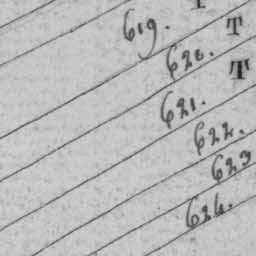 619. T
620. T
621.
622.
623
624.